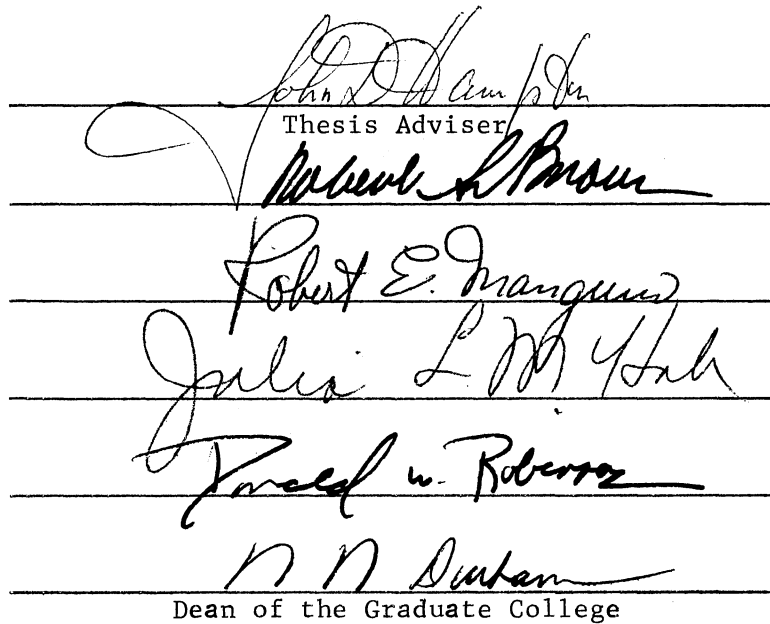 John D Hampton
Thesis Adviser
Robert S Brown
Robert E. Mangum
Julia L. McHale
Donald W. Robinson
N N Durham
Dean of the Graduate College